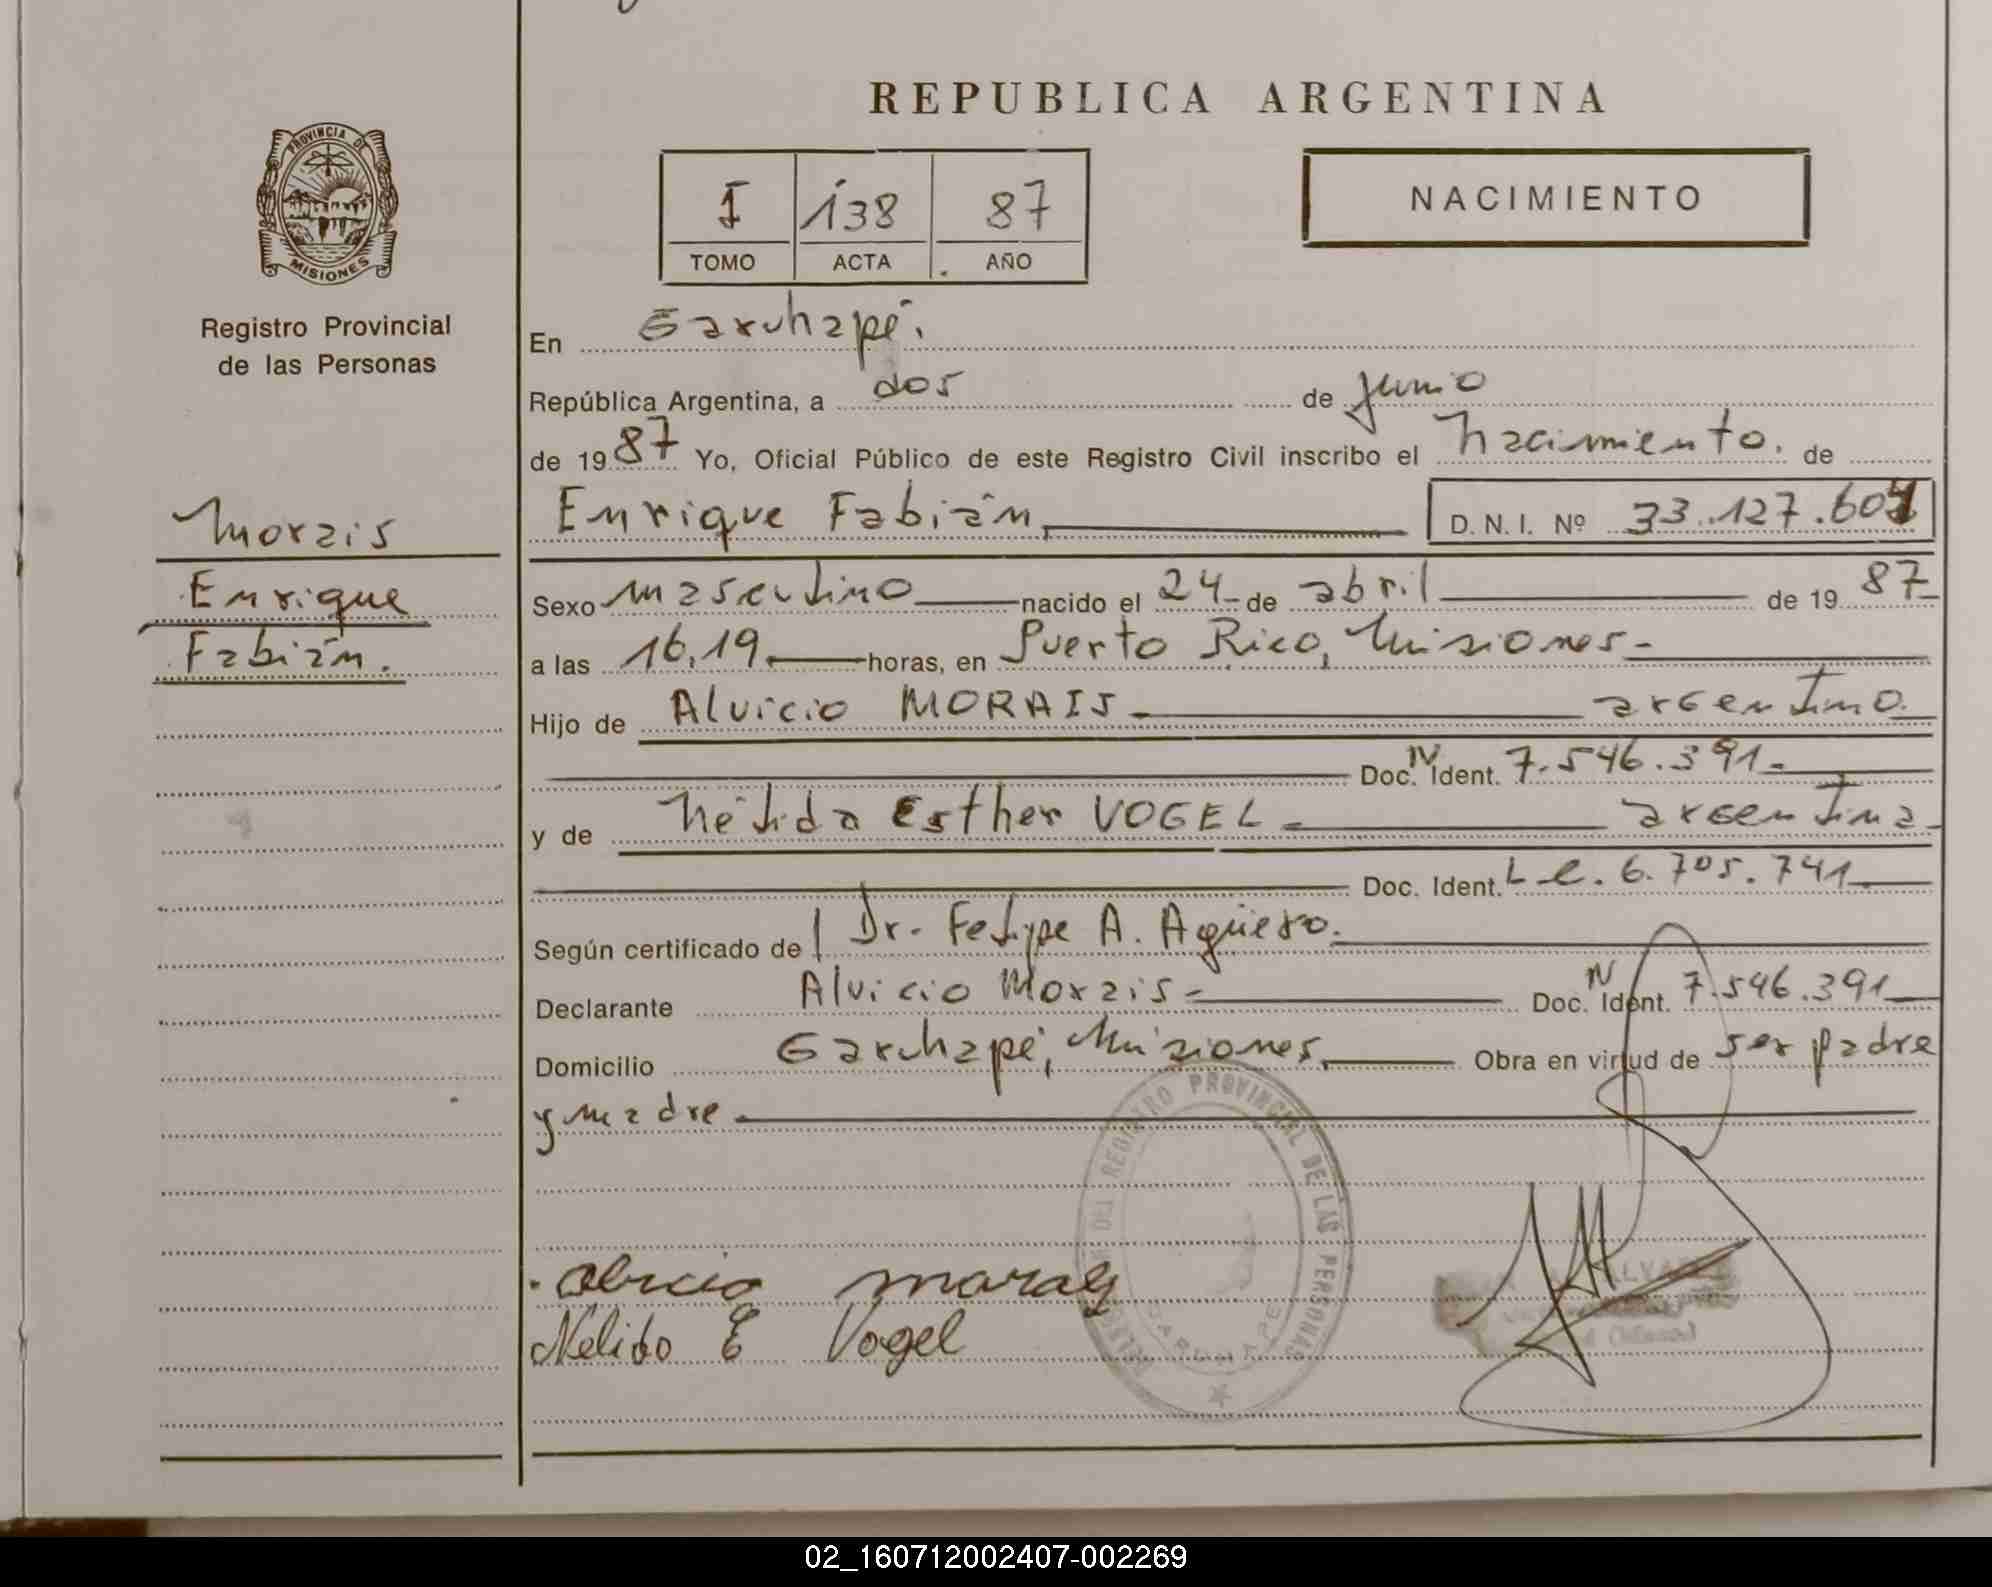 REPUBLICA ARGENTINA
PROVINCIA DE
MISIONES
Registro Provincial
de las Personas
I 138 87
TOMO ACTA AÑO
NACIMIENTO
En Garuhapé.
República Argentina, a dos de junio
de 1987 Yo, Oficial Público de este Registro Civil inscribo el nacimiento. de
Enrique Fabián, D. N. I. Nº 33.127.601
Morais
Enrique
Fabián.
Sexo masculino nacido el 24 de abril de 1987
a las 16,19 horas, en Puerto Rico, Misiones-
Hijo de Alvicio MORAIS argentino.
Doc. N Ident. 7.546.391-
y de Nélida Esther VOGEL argentina
Doc. Ident. L.C. 6.705.741
Según certificado de Dr. Felipe A. Agüero.
Declarante Alvicio Morais- Doc. N Ident. 7.546.391
Domicilio Garuhapé, Misiones, Obra en virtud de ser padre
y madre
DEL REGISTRO PROVINCIAL DE LAS PERSONAS
GARUHAPE
Alvicio Morais
Nelida E Vogel
02_160712002407-002269